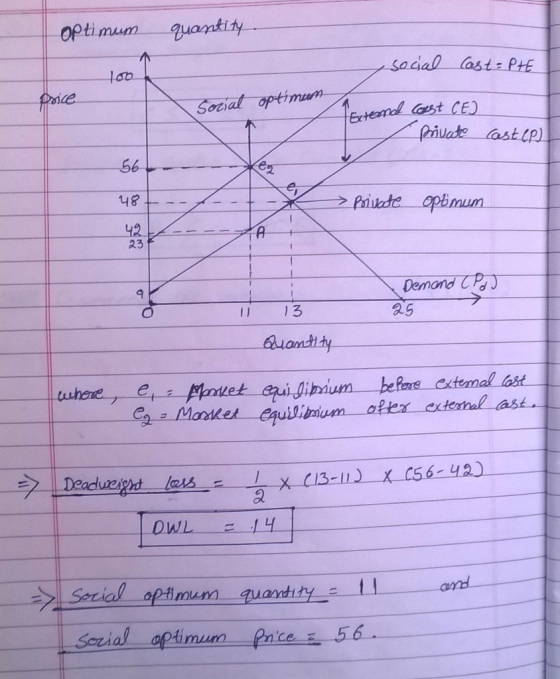 Optimum quantity.
100
Social Cost = P+E
Price
Social optimum
External Cost (E)
Private Cost (P)
56
e2
e1
48
Private optimum
42
A
23
9
Demand (Pd)
0
11
13
25
Quantity
where, e1 = Market equilibrium before external cost
e2 = Market equilibrium after external cost.
⇒ Deadweight loss = 1/2 × (13-11) × (56-42)
DWL = 14
⇒ Social optimum quantity = 11 and
Social optimum Price = 56.